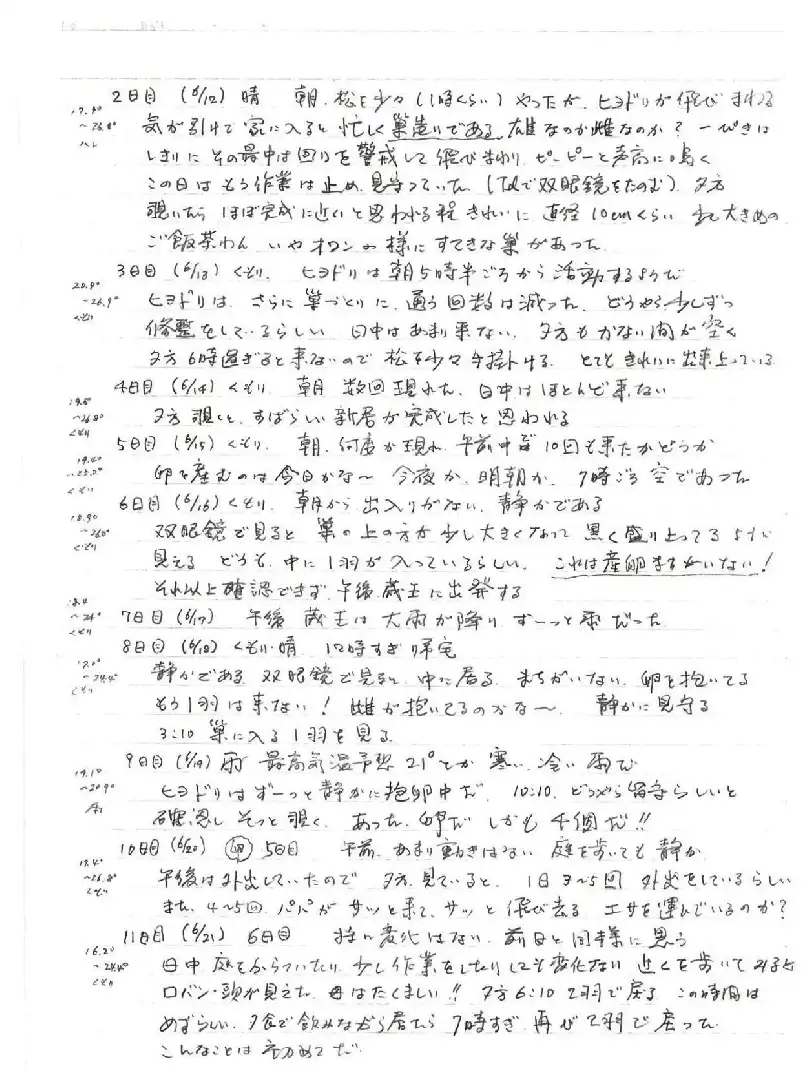 2日目 (6/12) 晴 朝、松を少々(1時間くらい)やったが、ヒヨドリが飛びまわる
17.5°
~26.8°
ハレ
気が引けて家に入ると忙しく巣造りである。雄なのか雌なのか? 一ぴきは
しきりにその最中は回りを警戒して飛びまわり ピーピーと声高に鳴く
この日はもう作業は止め、見守っていた。(Telで双眼鏡をたのむ) 夕方
覗いたら ほぼ完成に近いと思われる程 きれいに 直径10cmくらい 少し大きめの
ご飯茶わん いやオワンの様に すてきな巣があった
3日目 (6/13) くもり、 ヒヨドリは朝5時半ごろから活動するようだ
20.9°
~26.9°
くもり
ヒヨドリは、さらに巣づくりに、通う回数は減った、どうやら少しずつ
修整をしているらしい 日中はあまり来ない、夕方も 来ない間が空く
夕方6時過ぎると来ないので 松を少々手掛ける。 とてもきれいに出来上っている
4日目 (6/14) くもり、 朝 数回現れた、日中はほとんど来ない
19.8°
~26.8°
くもり
夕方 覗くと、すばらしい新居が完成したと思われる
5日目 (6/15) くもり、 朝、何度か現れ、午前中 10回も来たかどうか
19.4°
~25.2°
くもり
卵を産むのは今日かな〜 今夜か、明朝か、 7時ごろ 空であった
6日目 (6/16) くもり、 朝から出入りがない、静かである
18.9°
~26.0°
くもり
双眼鏡で見ると 巣の上の方が少し大きくなって 黒く盛り上ってるように
見える どうも、中に1羽が入っているらしい、 これは産卵まちがいない!
それ以上確認できず、午後蔵王に出発する
~24°
くもり
7日目 (6/17) 午後 蔵王は 大雨が降り ずーっと雨だった
8日目 (6/18) くもり・晴 12時すぎ帰宅
~24.4°
くもり
静かである 双眼鏡で見ると、中に居る、まちがいない、卵を抱いてる
もう1羽は来ない! 雌が抱いてるのかな〜、 静かに見守る
3:10 巣に入る1羽を見る
9日目 (6/19) 雨 最高気温予想 21°とか 寒い、冷い雨だ
19.1°
~20.9°
雨
ヒヨドリはずーっと静かに抱卵中だ、 10:10、どうやら留守らしいと
確認し そっと覗く、 あった、卵だ しかも 4個だ!!
10日目 (6/20) 卵 5日目 午前、あまり動きはない 庭を歩いても静か
17.4°
~26.8°
くもり
午後は外出していたので 夕方、見ていると、 1日3~5回 外出をしているらしい
また、4~5回 パパがサッと来て、サッと飛び去る エサを運んでいるのか?
11日目 (6/21) 6日目 特に変化はない、前日と同様に思う
16.2°
~24.4°
くもり
日中 庭をうろついたり、少し作業をしたりしても変化ない 近くを歩いてみると
口バシ・頭が見えた、母はたくましい!! 夕方6:10 2羽で戻る この時間は
めずらしい、夕食で飲みながら居たら 7時すぎ 再び2羽で戻った
こんなことは初めてだ。